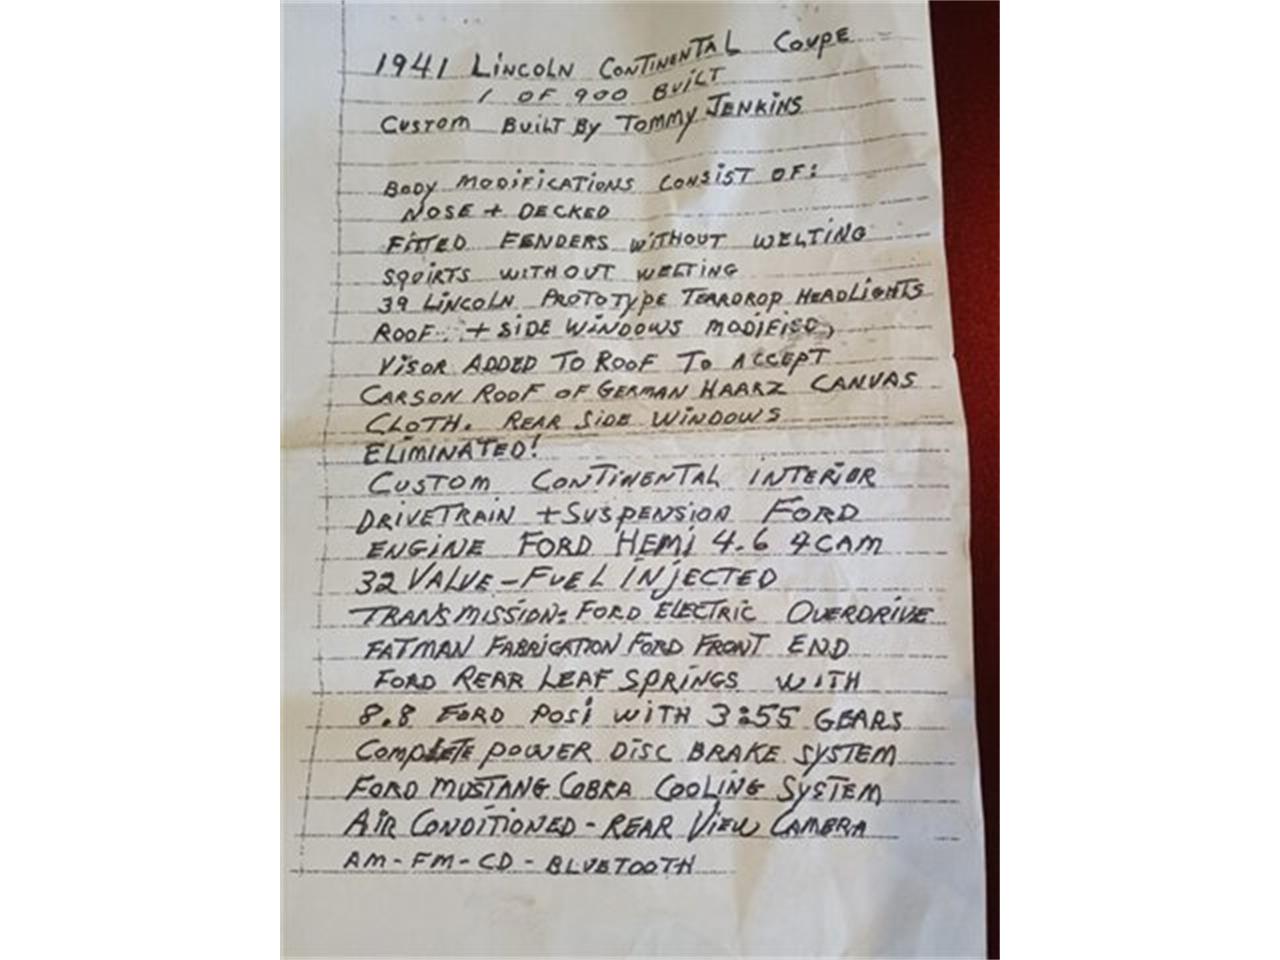 1941 LINCOLN CONTINENTAL COUPE
1 OF 900 BUILT
CUSTOM BUILT BY TOMMY JENKINS
BODY MODIFICATIONS CONSIST OF:
NOSE + DECKED
FITTED FENDERS WITHOUT WELTING
SQUIRTS WITHOUT WELTING
39 LINCOLN PROTOTYPE TEARDROP HEADLIGHTS
ROOF + SIDE WINDOWS MODIFIED,
VISOR ADDED TO ROOF TO ACCEPT
CARSON ROOF OF GERMAN HAARZ CANVAS
CLOTH. REAR SIDE WINDOWS
ELIMINATED!
CUSTOM CONTINENTAL INTERIOR
DRIVETRAIN + SUSPENSION FORD
ENGINE FORD HEMI 4.6 4 CAM
32 VALVE - FUEL INJECTED
TRANSMISSION: FORD ELECTRIC OVERDRIVE
FATMAN FABRICATION FORD FRONT END
FORD REAR LEAF SPRINGS WITH
8.8 FORD POSI WITH 3:55 GEARS
COMPLETE POWER DISC BRAKE SYSTEM
FORD MUSTANG COBRA COOLING SYSTEM
AIR CONDITIONED - REAR VIEW CAMERA
AM - FM - CD - BLUETOOTH